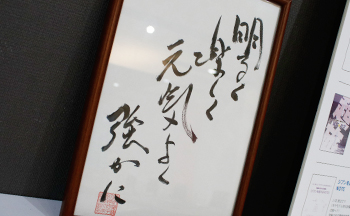 明るく
楽しく
元気よく
強かに